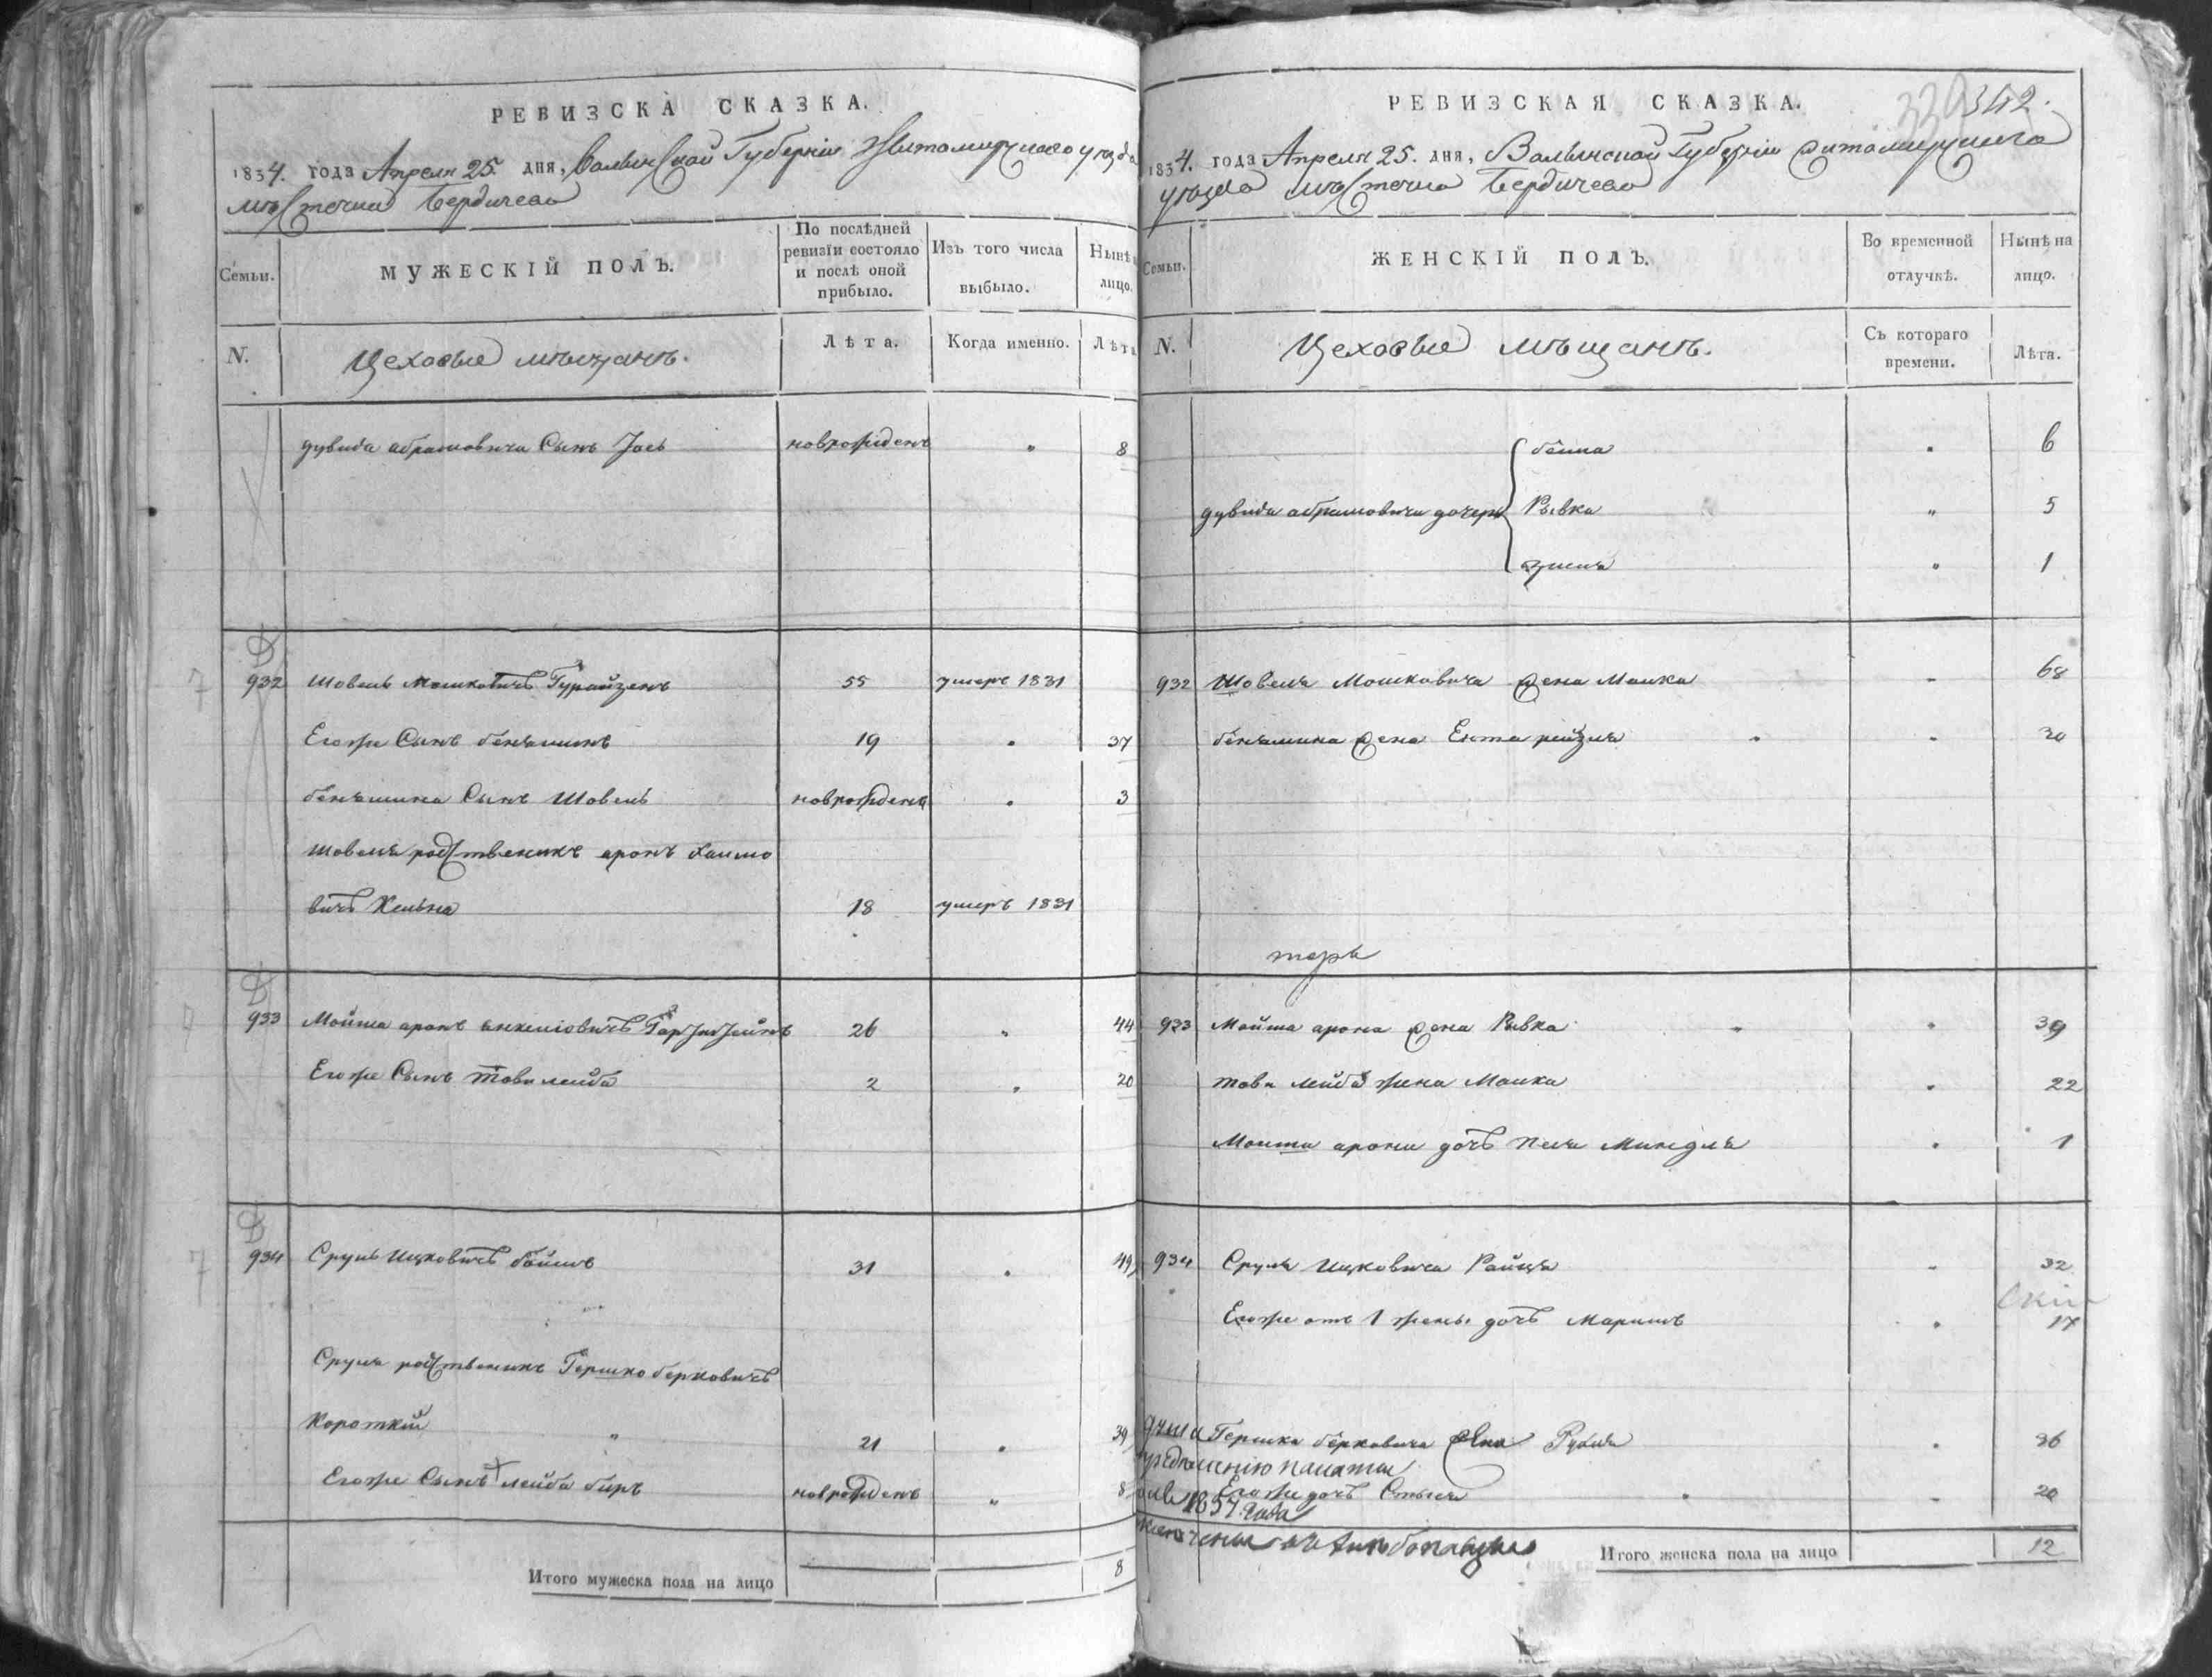 РЕВИЗСКА СКАЗКА.
1834. года Апреля 25. дня, Волынской Губернiи Житомирскаго уезда
местечка Бердичева
Семьи.
МУЖЕСКIЙ ПОЛЪ.
По послѣдней
ревизiи состояло
и послѣ оной
прибыло.
Изъ того числа
выбыло.
Нынѣ
лицо.
N.
Цеховые мещанъ.
Лѣта.
Когда именно.
Лѣта
дувида абрамовича Сынъ Iось новрожденъ " 8
932 Шовель Мошковичъ 55 умеръ 1831
Егоже Сынъ бенъминъ 19 " 37
бенъмина Сынъ Шовель новрожденъ " 3
шовеля родственикъ аронъ Хаимо
вичъ 18 умеръ 1831
933 Мойша аронъ 26 " 44
Егоже Сынъ това лейба 2 " 20
934 Сруль Ицковичъ 31 " 49
Сруля родственикъ Гершко берковичъ
Короткiй " 21 " 39
Егоже Сынъ лейба беръ новрожденъ " 8
Итого мужеска пола на лицо 8
РЕВИЗСКАЯ СКАЗКА.
342.
1834. года Апреля 25. дня, Волынской Губернiи житомирскаго
уезда местечка Бердичева
Семьи.
ЖЕНСКIЙ ПОЛЪ.
Во временной
отлучкѣ.
Нынѣ на
лицо.
N.
Цеховые мѣщанъ.
Съ котораго
времени.
Лѣта.
бейла " 6
дувида абрамовича дочери Рывка " 5
" 1
932 Шовеля Мошковича жена Малка " 68
бенъмина жена Ента рейзля " 30
933 Мойша арона жена Рывка " 39
това лейба жена Малка " 22
Мойша арона дочь Песя Миндля " 1
934 Сруля Ицковича Райця " 32
Егоже отъ 1 жены дочь "
Гершка берковича жена Рухля " 36
Егоже дочь " 20
1857 года
Итого женска пола на лицо 12